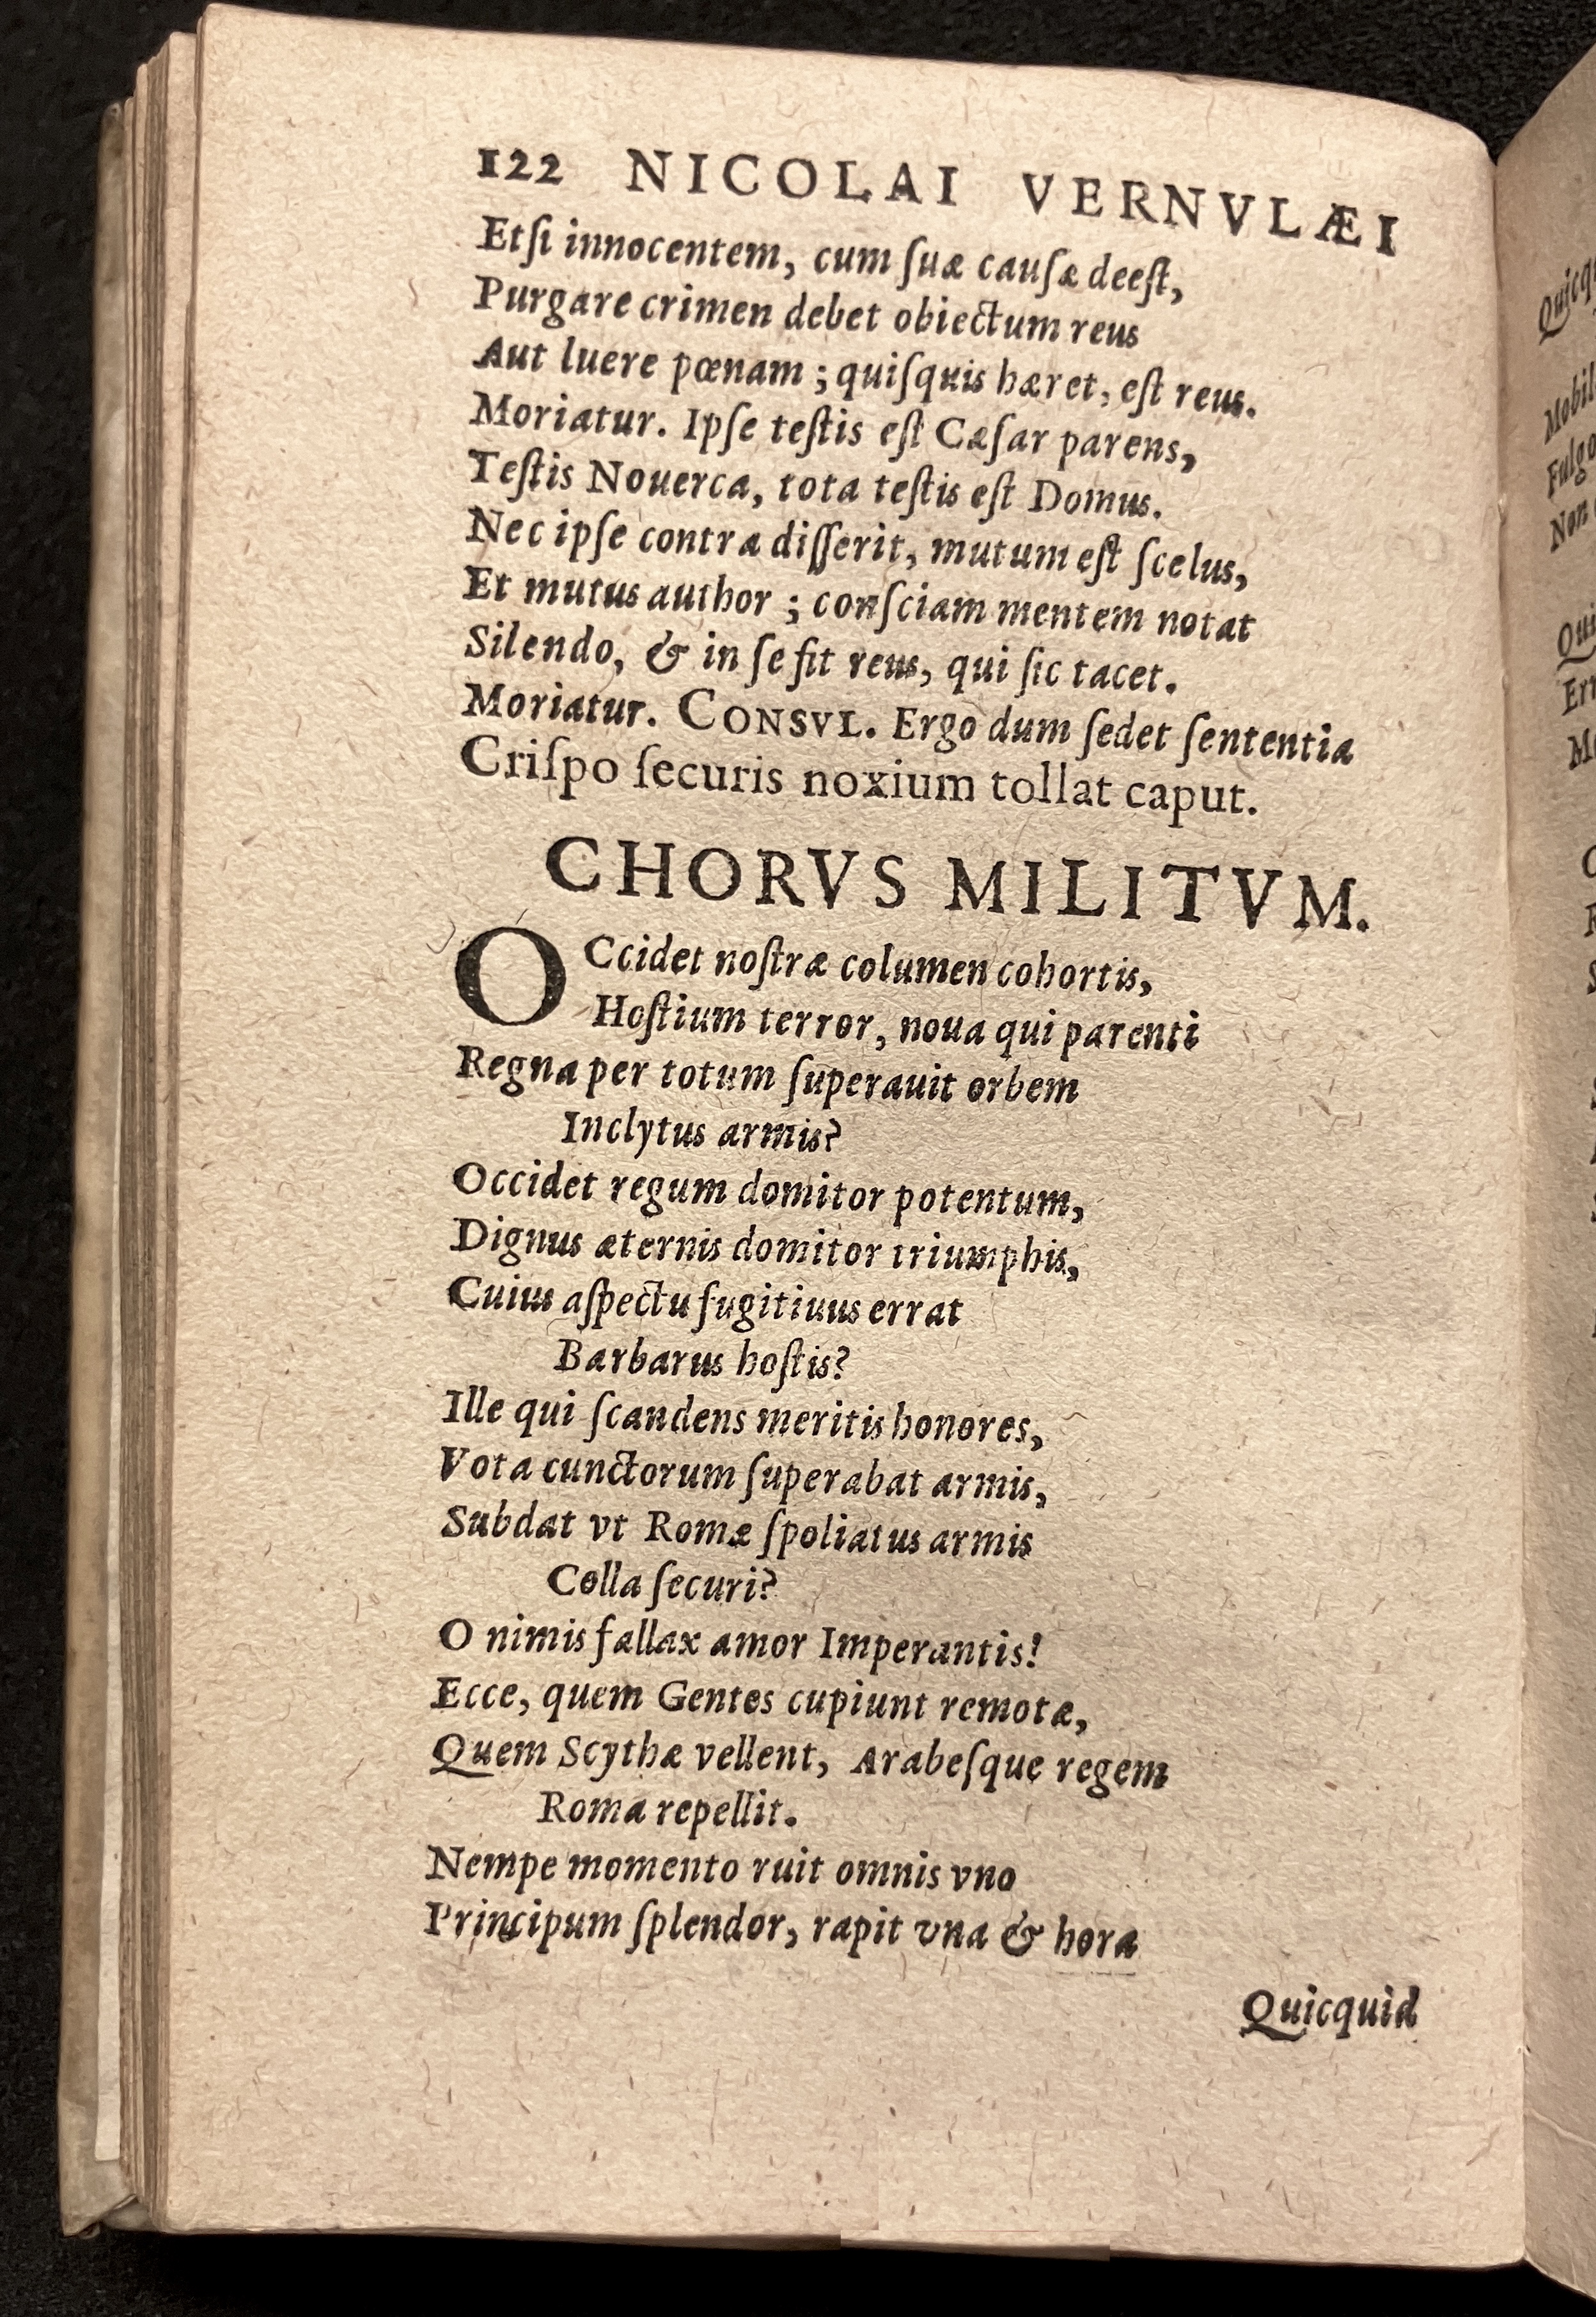 122 NICOLAI VERNVLÆI
Etſi innocentem, cum ſuæ cauſæ deeſt,
Purgare crimen debet obiectum reus
Aut luere pœnam ; quiſquis hæret, eſt reus.
Moriatur. Ipſe teſtis eſt Cæſar parens,
Teſtis Nouerca, tota teſtis eſt Domus.
Nec ipſe contra diſſerit, mutum eſt ſcelus,
Et mutus author ; conſciam mentem notat
Silendo, & in ſe fit reus, qui ſic tacet.
Moriatur. CONSVL. Ergo dum ſedet ſententia
Criſpo ſecuris noxium tollat caput.
CHORVS MILITVM.
OCcidet noſtræ columen cohortis,
Hoſtium terror, noua qui parenti
Regna per totum ſuperauit orbem
Inclytus armis?
Occidet regum domitor potentum,
Dignus æternis domitor triumphis,
Cuius aſpectu fugitiuus errat
Barbarus hoſtis?
Ille qui ſcandens meritis honores,
Vota cunctorum ſuperabat armis,
Subdat vt Romæ ſpoliatus armis
Colla ſecuri?
O nimis fallax amor Imperantis!
Ecce, quem Gentes cupiunt remotæ,
Quem Scythæ vellent, Arabeſque regem
Roma repellit.
Nempe momento ruit omnis vno
Principum ſplendor, rapit vna & hora
Quicquid